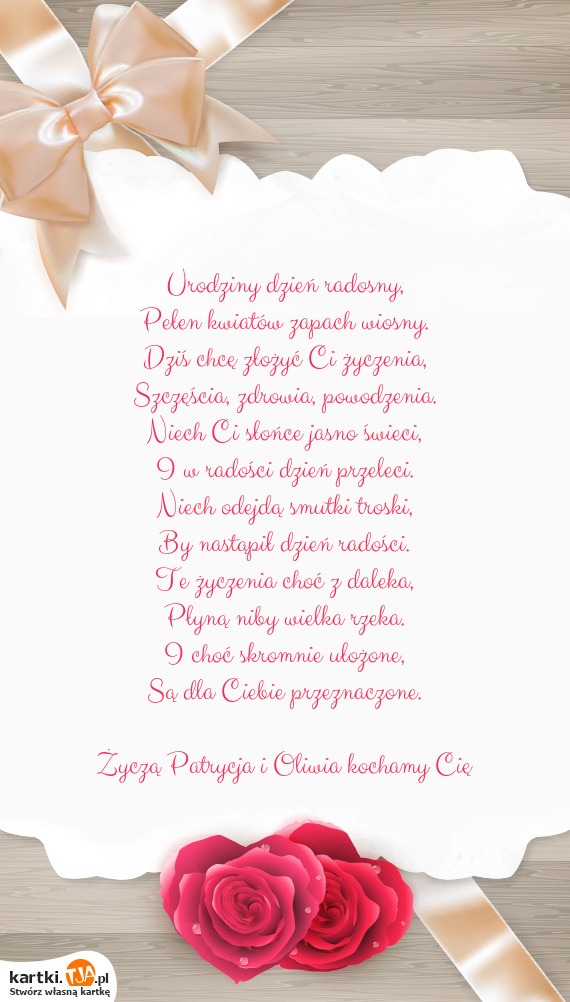 Urodziny dzień radosny,
Pełen kwiatów zapach wiosny.
Dziś chcę złożyć Ci życzenia,
Szczęścia, zdrowia, powodzenia.
Niech Ci słońce jasno świeci,
I w radości dzień przeleci.
Niech odejdą smutki troski,
By nastąpił dzień radości.
Te życzenia choć z daleka,
Płyną niby wielka rzeka.
I choć skromnie ułożone,
Są dla Ciebie przeznaczone.
Życzą Patrycja i Oliwia kochamy Cię
kartki.TJA.pl
Stwórz własną kartkę